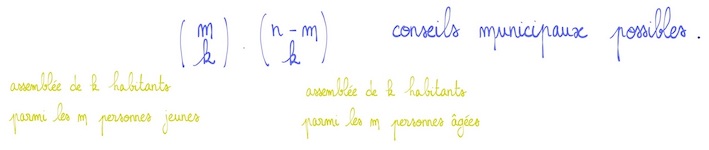 (m k) . (n - m k) conseils municipaux possibles.
assemblée de k habitants
parmi les m personnes jeunes
assemblée de k habitants
parmi les m personnes âgées